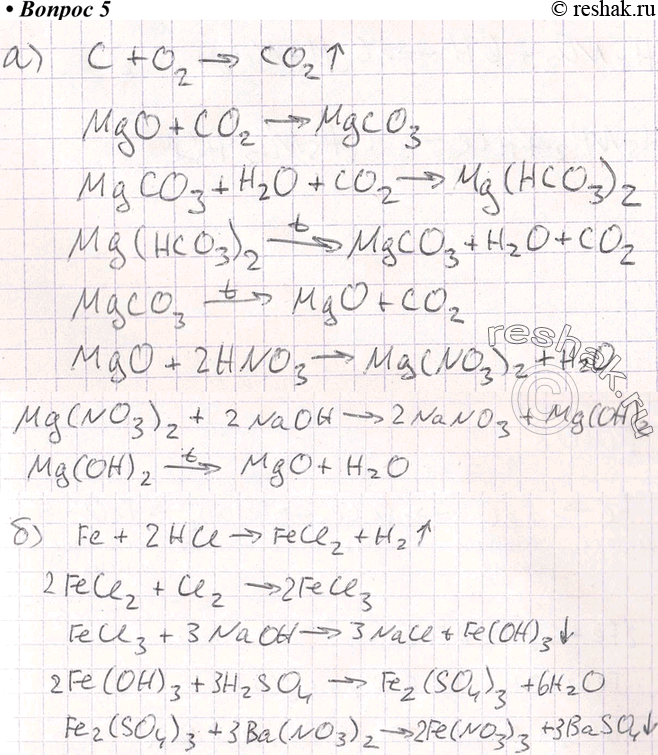 • Вопрос 5 © reshak.ru
а) C + O₂ → CO₂↑
MgO + CO₂ → MgCO₃
MgCO₃ + H₂O + CO₂ → Mg(HCO₃)₂
Mg(HCO₃)₂ —t→ MgCO₃ + H₂O + CO₂
MgCO₃ —t→ MgO + CO₂
MgO + 2HNO₃ → Mg(NO₃)₂ + H₂O
Mg(NO₃)₂ + 2NaOH → 2NaNO₃ + Mg(OH)₂
Mg(OH)₂ —t→ MgO + H₂O
б) Fe + 2HCl → FeCl₂ + H₂↑
2FeCl₂ + Cl₂ → 2FeCl₃
FeCl₃ + 3NaOH → 3NaCl + Fe(OH)₃↓
2Fe(OH)₃ + 3H₂SO₄ → Fe₂(SO₄)₃ + 6H₂O
Fe₂(SO₄)₃ + 3Ba(NO₃)₂ → 2Fe(NO₃)₃ + 3BaSO₄↓
reshak.ru
©